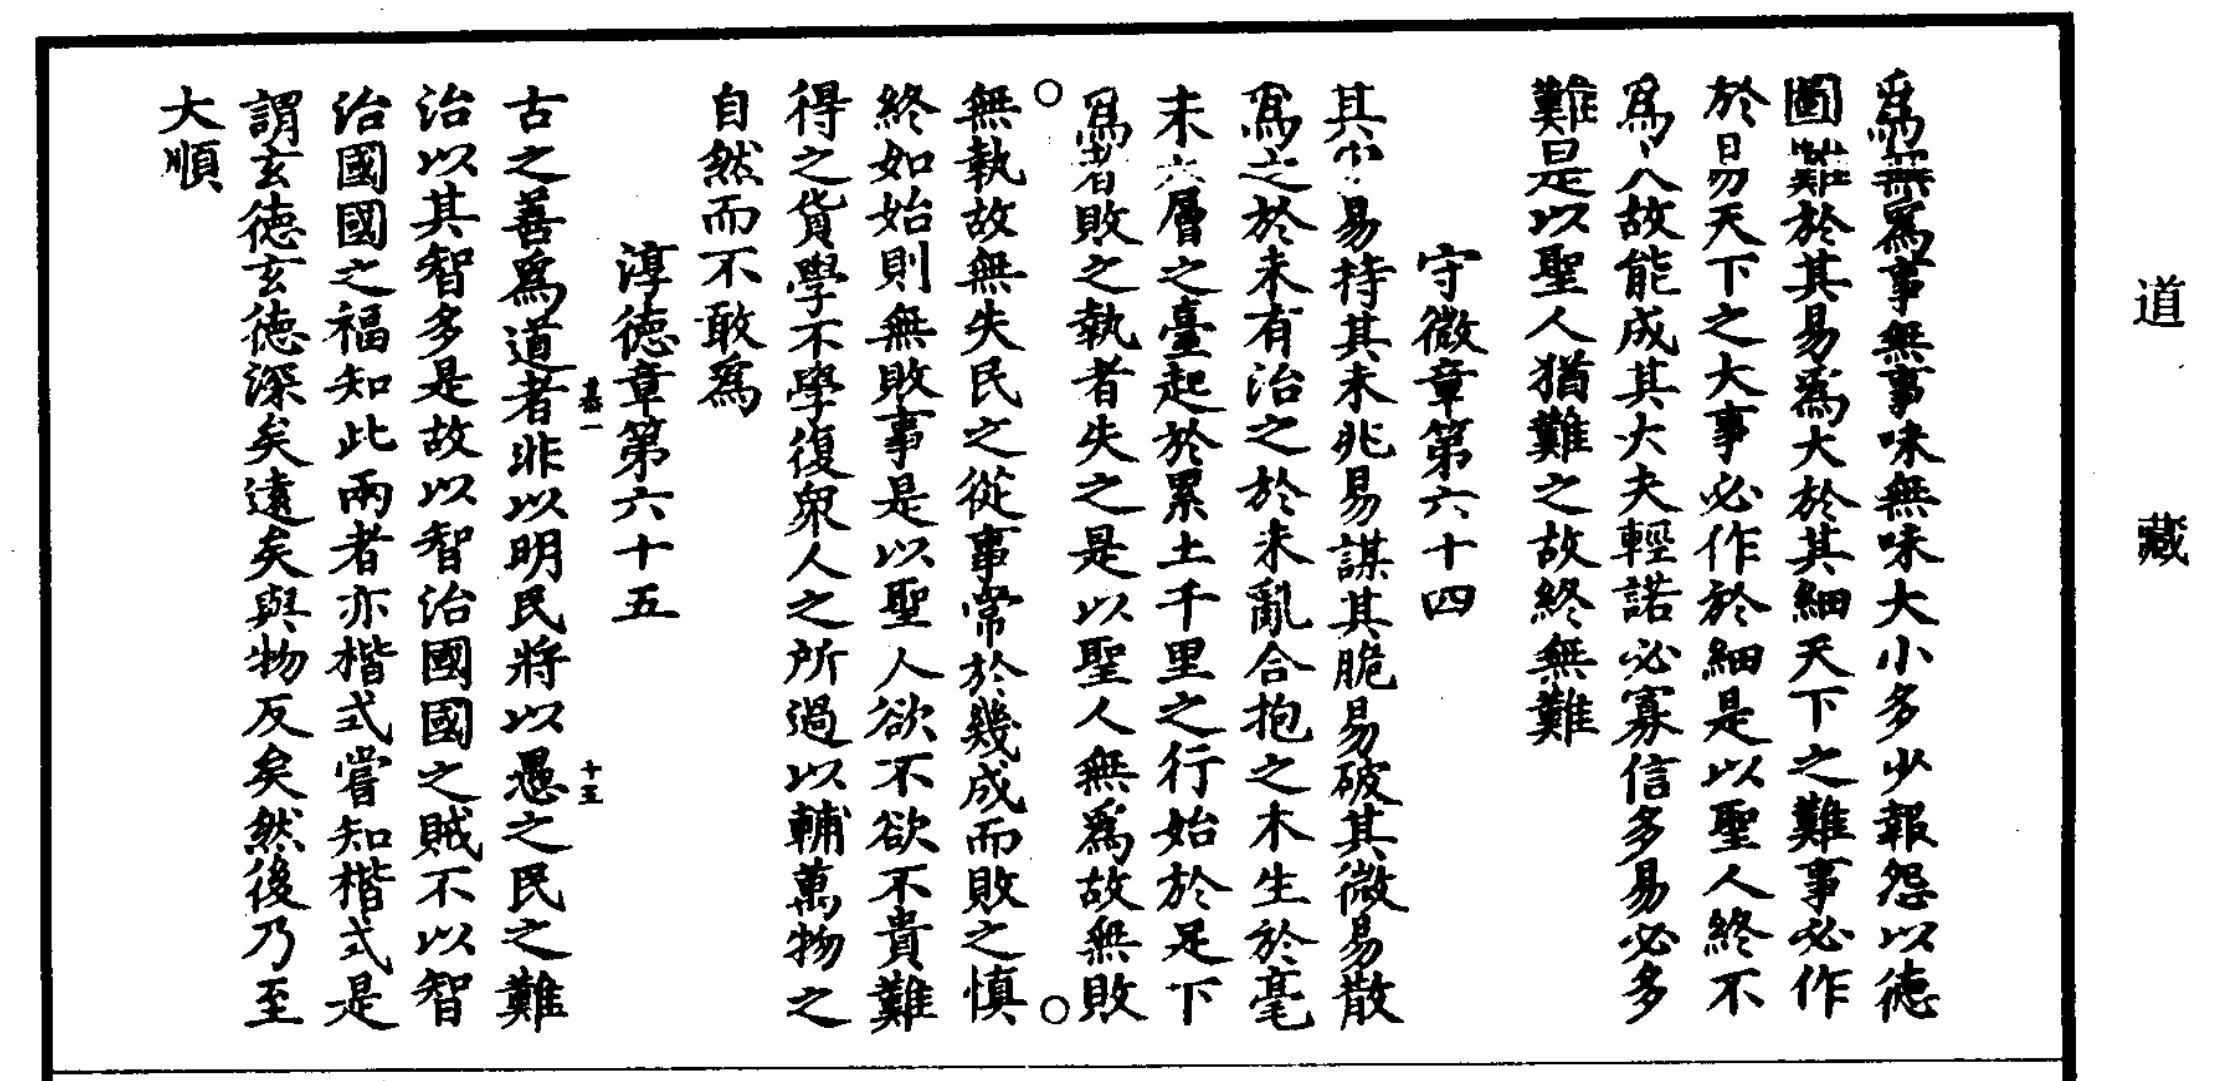 道藏
爲無爲事無事味無味大小多少報怨以德
圖難於其易爲大於其細天下之難事必作
於易天下之大事必作於細是以聖人終不
爲大故能成其大夫輕諾必寡信多易必多
難是以聖人猶難之故終無難
守微章第六十四
其易持其未兆易謀其脆易破其微易散
爲之於未有治之於未亂合抱之木生於毫
末層之臺起於累土千里之行始於足下
○爲者敗之執者失之是以聖人無爲故無敗○
無執故無失民之從事常於幾成而敗之慎
終如始則無敗事是以聖人欲不欲不貴難
得之貨學不學復衆人之所過以輔萬物之
自然而不敢爲
淳德章第六十五
一
十五
古之善爲道者非以明民將以愚之民之難
治以其智多是故以智治國國之賊不以智
治國國之福知此兩者亦楷式嘗知楷式是
謂玄德玄德深矣遠矣與物反矣然後乃至
大順